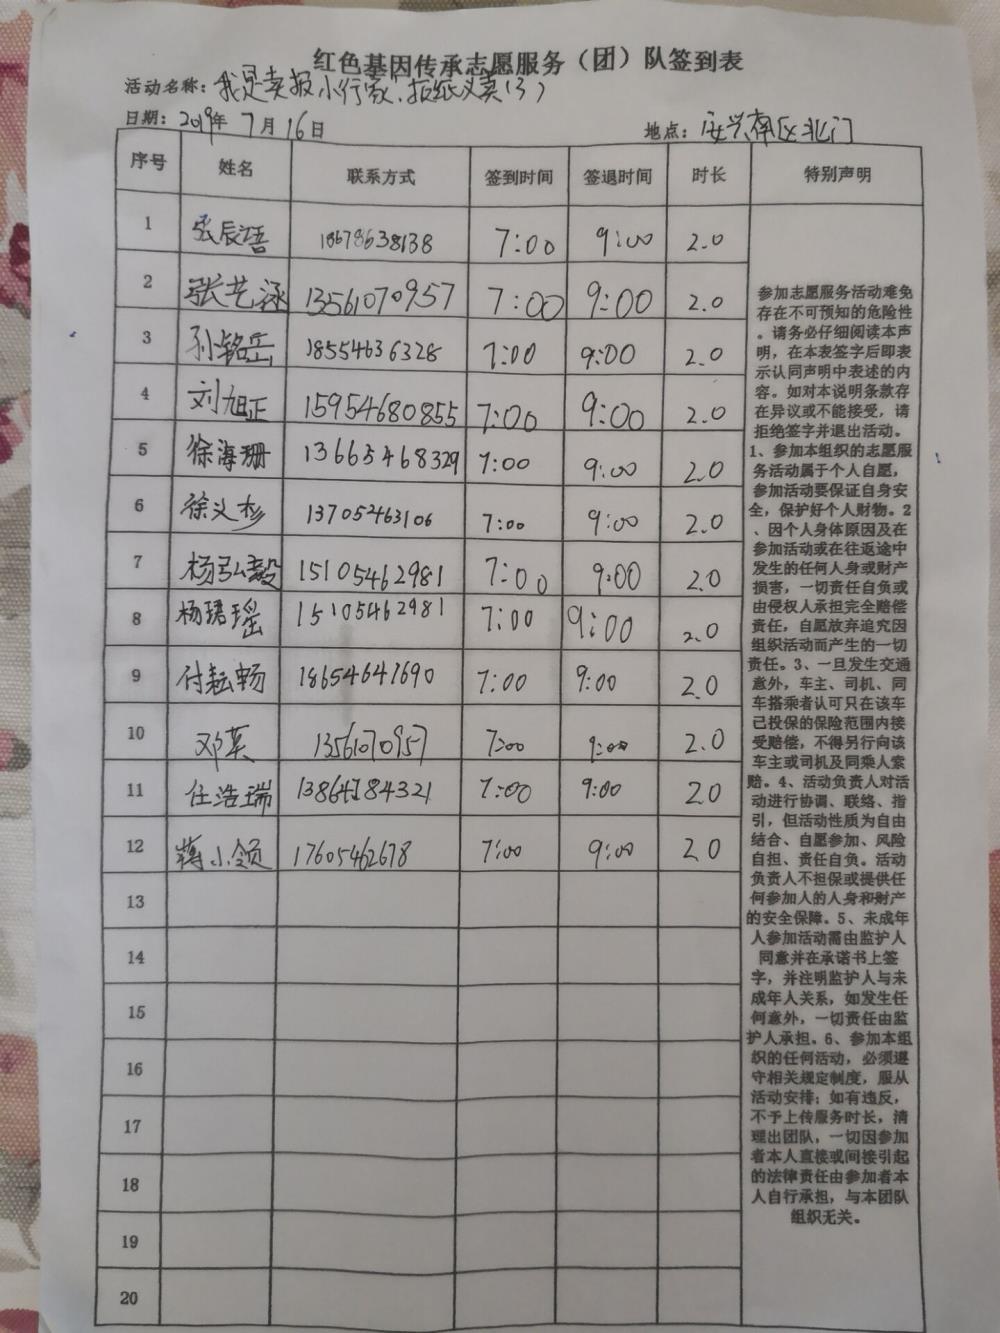 红色基因传承志愿服务（团）队签到表
活动名称：我是卖报小行家，报纸义卖(3)
日期：2019年 7月16日 地点：安兴南区北门
序号 姓名 联系方式 签到时间 签退时间 时长 特别声明
1 张辰语 18678638138 7:00 9:00 2.0
2 张艺涵 13561070957 7:00 9:00 2.0
3 孙铭岳 18554636328 7:00 9:00 2.0
4 刘旭正 15954680855 7:00 9:00 2.0
5 徐海珊 13665468329 7:00 9:00 2.0
6 徐义杉 13705463106 7:00 9:00 2.0
7 杨弘毅 15105462981 7:00 9:00 2.0
8 杨珺瑶 15105462981 7:00 9:00 2.0
9 付耘畅 18654647690 7:00 9:00 2.0
10 邓英 13561070957 7:00 9:00 2.0
11 任浩瑞 7:00 9:00 20
12 蒋小领 17605462678 7:00 9:00 20
13
14
15
16
17
18
19
20
参加志愿服务活动难免
存在不可预知的危险性
。请务必仔细阅读本声
明，在本表签字后即表
示认同声明中表述的内
容。如对本说明条款存
在异议或不能接受，请
拒绝签字并退出活动。
1、参加本组织的志愿服
务活动属于个人自愿，
参加活动要保证自身安
全，保护好个人财物。2
、因个人身体原因及在
参加活动或在往返途中
发生的任何人身或财产
损害，一切责任自负或
由侵权人承担完全赔偿
责任，自愿放弃追究因
组织活动而产生的一切
责任。3、一旦发生交通
意外，车主、司机、同
车搭乘者认可只在该车
已投保的保险范围内接
受赔偿，不得另行向该
车主或司机及同乘人索
赔。4、活动负责人对活
动进行协调、联络、指
引，但活动性质为自由
结合、自愿参加、风险
自担、责任自负。活动
负责人不担保或提供任
何参加人的人身和财产
的安全保障。5、未成年
人参加活动需由监护人
同意并在承诺书上签
字，并注明监护人与未
成年人关系，如发生任
何意外，一切责任由监
护人承担。6、参加本组
织的任何活动，必须遵
守相关规定制度，服从
活动安排；如有违反，
不予上传服务时长，清
理出团队，一切因参加
者本人直接或间接引起
的法律责任由参加者本
人自行承担，与本团队
组织无关。